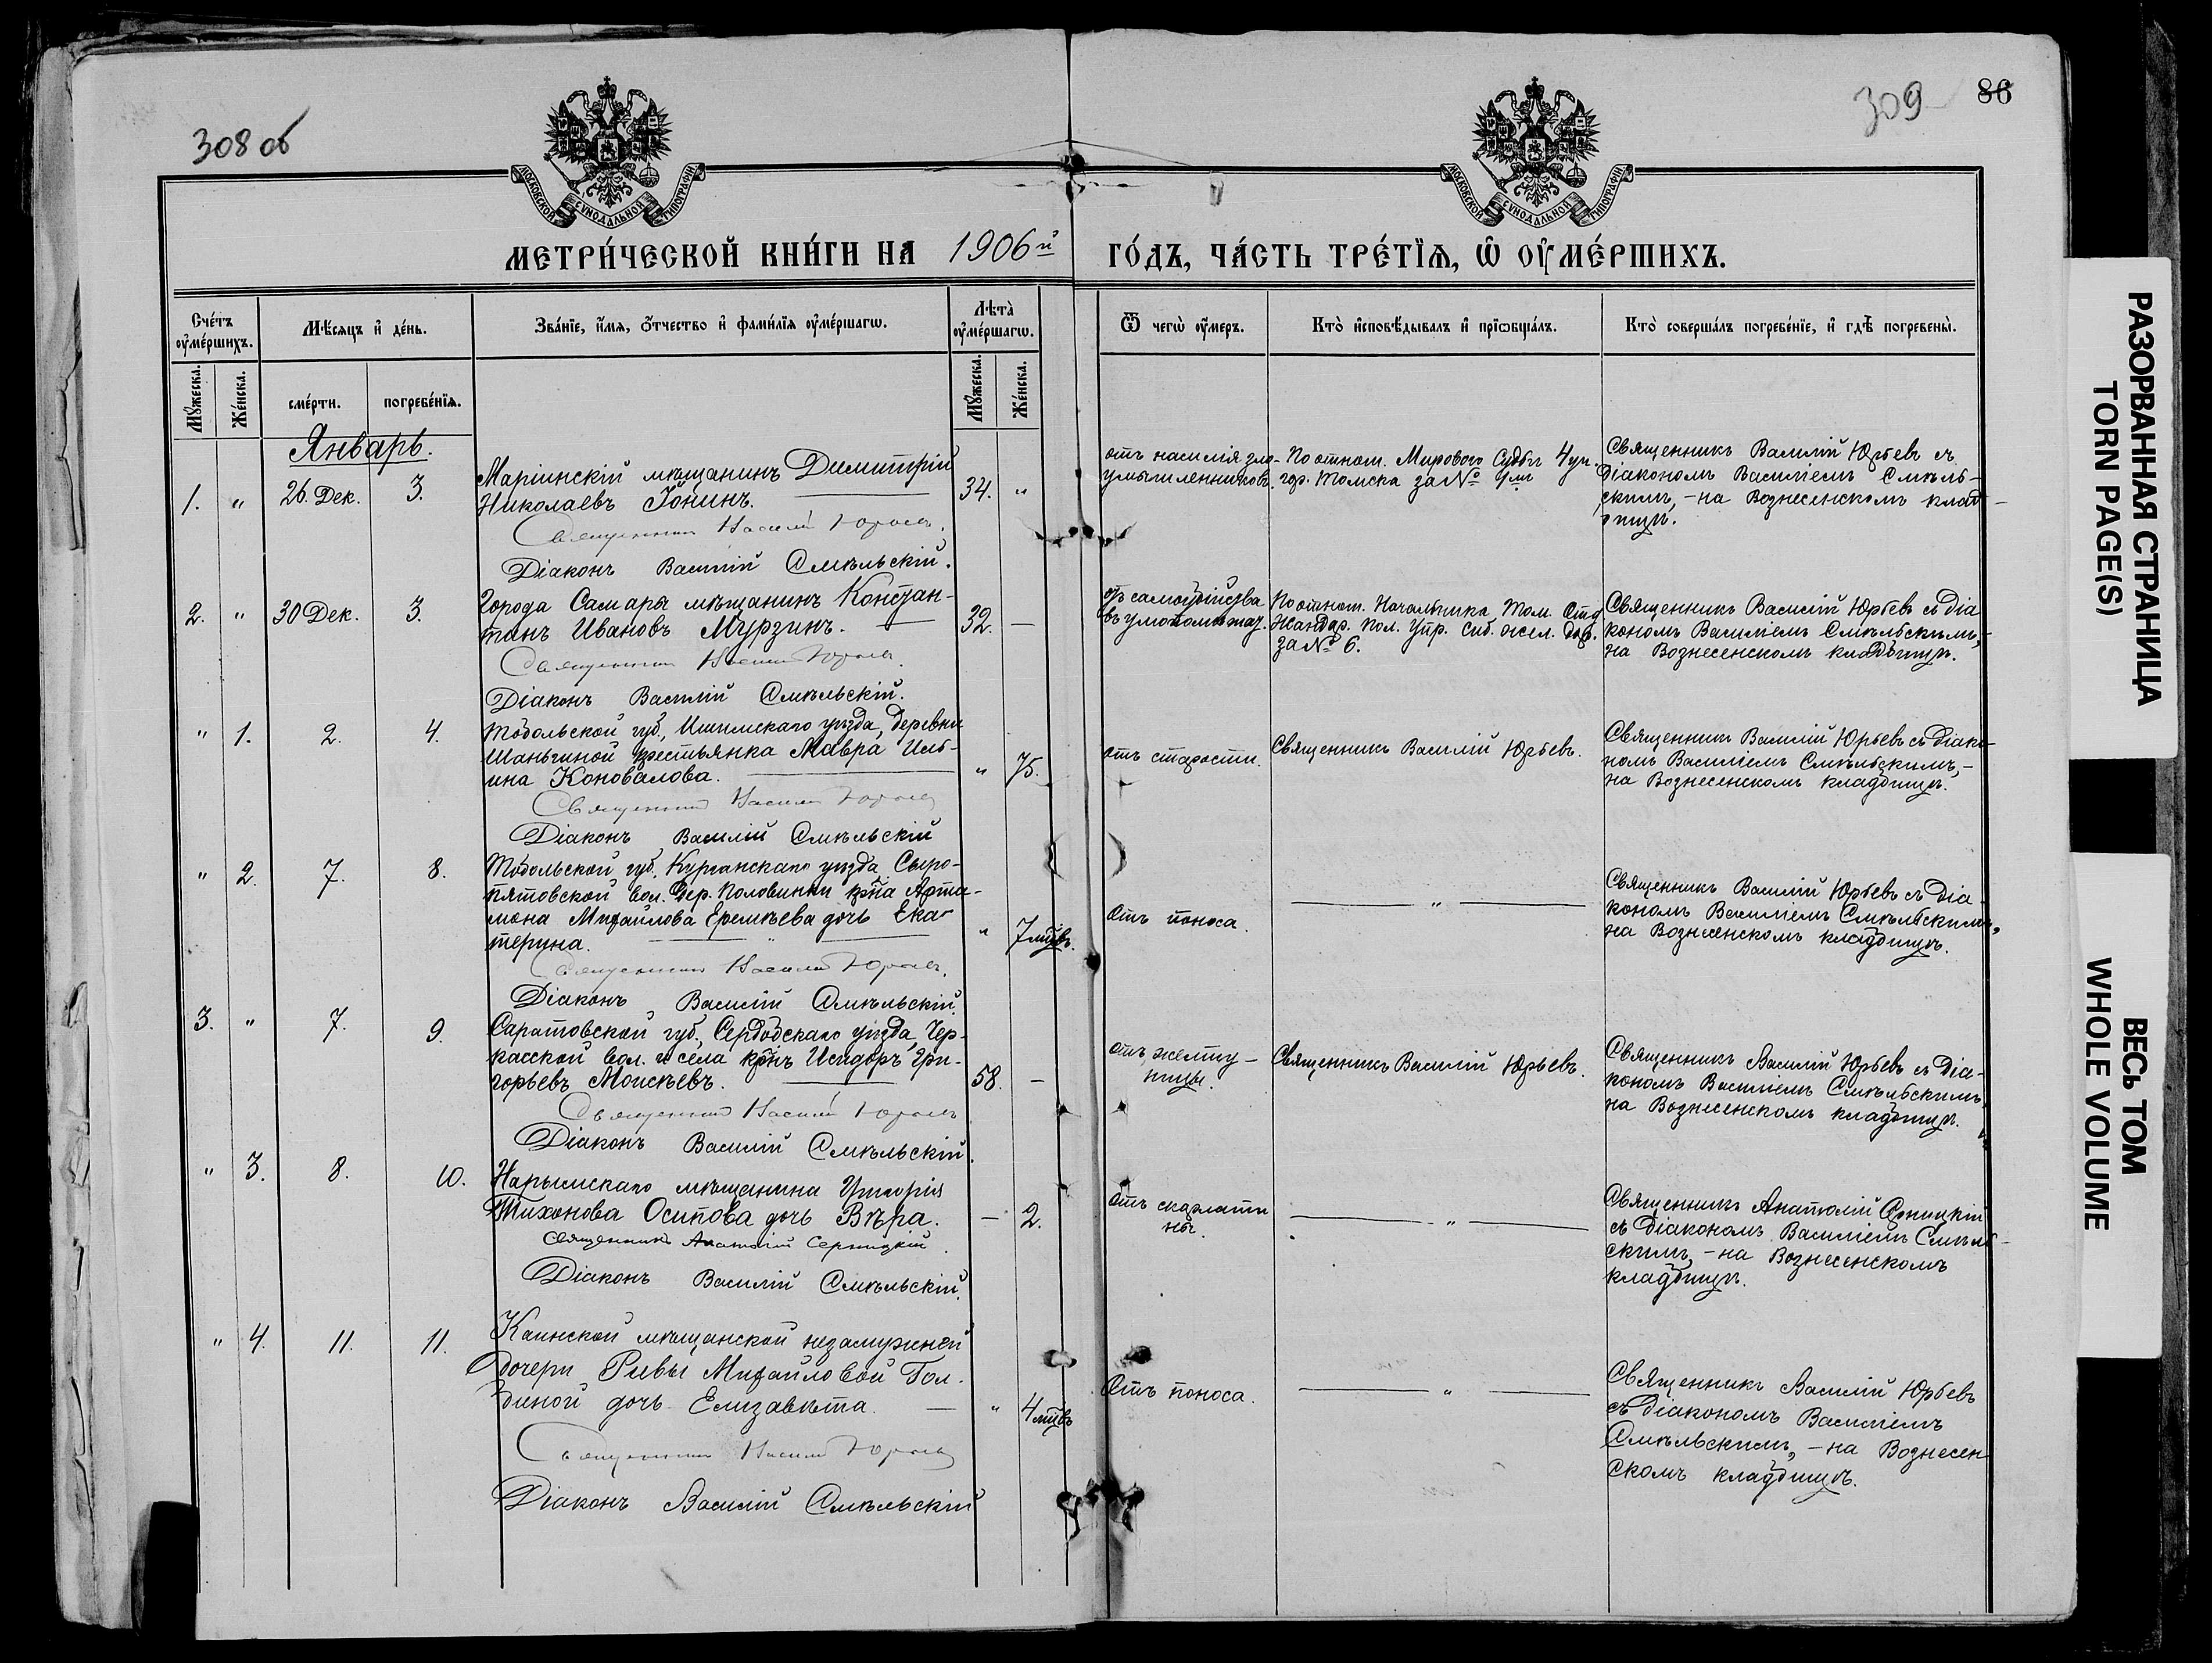 308 об
309
86
МОСКОВСКОЙ СѴНОДАЛЬНОЙ ТИПОГРАФІИ
МОСКОВСКОЙ СѴНОДАЛЬНОЙ ТИПОГРАФІИ
МЕТРИ́ЧЕСКОЙ КНИ́ГИ НА 1906й ГО́ДЪ, ЧА́СТЬ ТРЕ́ТЇѦ, Ѡ҆ ОУ҆МЕ́РШИХЪ.
Сче́тъ оу҆ме́ршихъ.
Мѣ́сяцъ и҆ де́нь.
Зва́нїе, и҆́мѧ, ѻ҆́тчество и҆ фами́лїѧ оу҆ме́ршагѡ.
Лѣта̀ оу҆ме́ршагѡ.
Ѿ чегѡ̀ оу҆́меръ.
Кто̀ и҆сповѣ́дывалъ и҆ прїѡбща́лъ.
Кто̀ соверша́лъ погребе́нїе, и҆ гдѣ̀ погребены̀.
Мꙋ́жеска.
Же́нска.
сме́рти.
погребе́нїѧ.
Мꙋ́жеска.
Же́нска.
Январь.
1. " 26 Дек. 3.
Маріинскій мѣщанинъ Димитрій
Николаевъ Іонинъ.
34. "
Священникъ Василій Юрьевъ.
Діаконъ Василій Смѣльскій.
отъ насилія зло-
умышленниковъ.
По отнош. Мирового Судьи 4 уч.
гор. Томска за №
Священникъ Василій Юрьев съ
Діаконом Василіемъ Смѣль-
скимъ, - на Вознесенскомъ клад-
бищѣ.
2. " 30 Дек. 3.
Города Самары мѣщанинъ Констан-
тинъ Ивановъ Мурзинъ.
32. —
Священникъ Василій Юрьевъ.
Діаконъ Василій Смѣльскій.
отъ самоубійства
въ умопомѣшат.
По отнош. Начальника Том. Отд
Жандар. пол. Упр. Сиб. жел. дор.
за № 6.
Священникъ Василій Юрьевъ съ діа
кономъ Василіемъ Смѣльскимъ,-
на Вознесенскомъ кладбищѣ.
" 1. 2. 4.
Тобольской губ., Ишимскаго уѣзда, деревни
Шаньгиной крестьянка Мавра Иль-
ина Коновалова.
" 75.
Священникъ Василій Юрьевъ
Діаконъ Василій Смѣльскій
отъ старости.
Священникъ Василій Юрьевъ.
Священникъ Василій Юрьевъ съ діако-
номъ Василіемъ Смѣльскимъ,-
на Вознесенскомъ кладбищѣ.
" 2. 7. 8.
Тобольской губ., Курганскаго уѣзда, Сыро-
пятовской вол. дер. Половинки крна Арта-
мона Михайлова Еремѣева дочь Ека-
терина.
" 7 мцвъ.
Священникъ Василій Юрьевъ.
Діаконъ Василій Смѣльскій.
Отъ поноса.
— " —
Священникъ Василій Юрьевъ съ діа-
кономъ Василіемъ Смѣльскимъ,
на Вознесенскомъ кладбищѣ.
3. " 7. 9.
Саратовской губ., Сердобскаго уѣзда, Чер-
касской вол. и села крнъ Исидоръ Гри-
горьевъ Моисѣевъ.
58. —
Священникъ Василій Юрьевъ
Діаконъ Василій Смѣльскій.
отъ желту-
ницы.
Священникъ Василій Юрьевъ.
Священникъ Василій Юрьевъ съ діа-
кономъ Василіемъ Смѣльскимъ,
на Вознесенскомъ кладбищѣ.
" 3. 8. 10.
Нарымскаго мѣщанина Григорія
Тихонова Осипова дочь Вѣра.
— 2.
Священникъ Анатолій Серницкій.
Діаконъ Василій Смѣльскій.
Отъ скарлати
ны.
— " —
Священникъ Анатолій Серницкій
съ Діакономъ Василіемъ Смѣль-
скимъ, - на Вознесенскомъ
кладбищѣ.
" 4. 11. 11.
Каинской мѣщанской незамужней
дочери Ривы Михайловой Гол-
диной дочь Елизавѣта. —
" 4 мцвъ
Священникъ Василій Юрьевъ
Діаконъ Василій Смѣльскій
Отъ поноса.
— " —
Священникъ Василій Юрьевъ
съ діакономъ Василіемъ
Смѣльскимъ, - на Вознесен
скомъ кладбищѣ.
РАЗОРВАННАЯ СТРАНИЦА
TORN PAGE(S)
ВЕСЬ ТОМ
WHOLE VOLUME